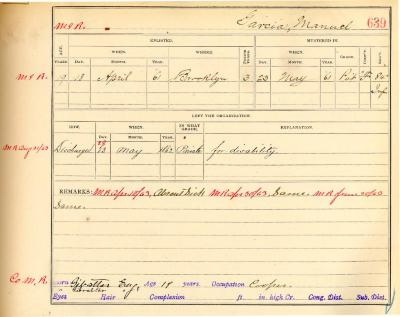 M & R.
Garcia, Manuel 639
ENLISTED. MUSTERED IN.
AGE. WHEN. WHERE. WHEN. GRADE. CO.
YEARS. DAY. MONTH. YEAR. DAY. MONTH. YEAR.
M & R. 19 18 April 61 Brooklyn 3 23 May 61 Pvt
LEFT THE ORGANIZATION.
HOW. WHEN. IN WHAT GRADE. EXPLANATION.
DAY. MONTH. YEAR.
28
Discharged 23 May Private for disability
REMARKS: M.R. Apr 10/63, Absent Sick M.R. Apr 30/63, Same. M.R. June 30/63
Same.
Co. M. R.
Born Gibralter Eng, Age 18 years. Occupation Cooper
Gibralter
Eyes Hair Complexion ft. in. high Cr. Cong. Dist. Sub. Dist.